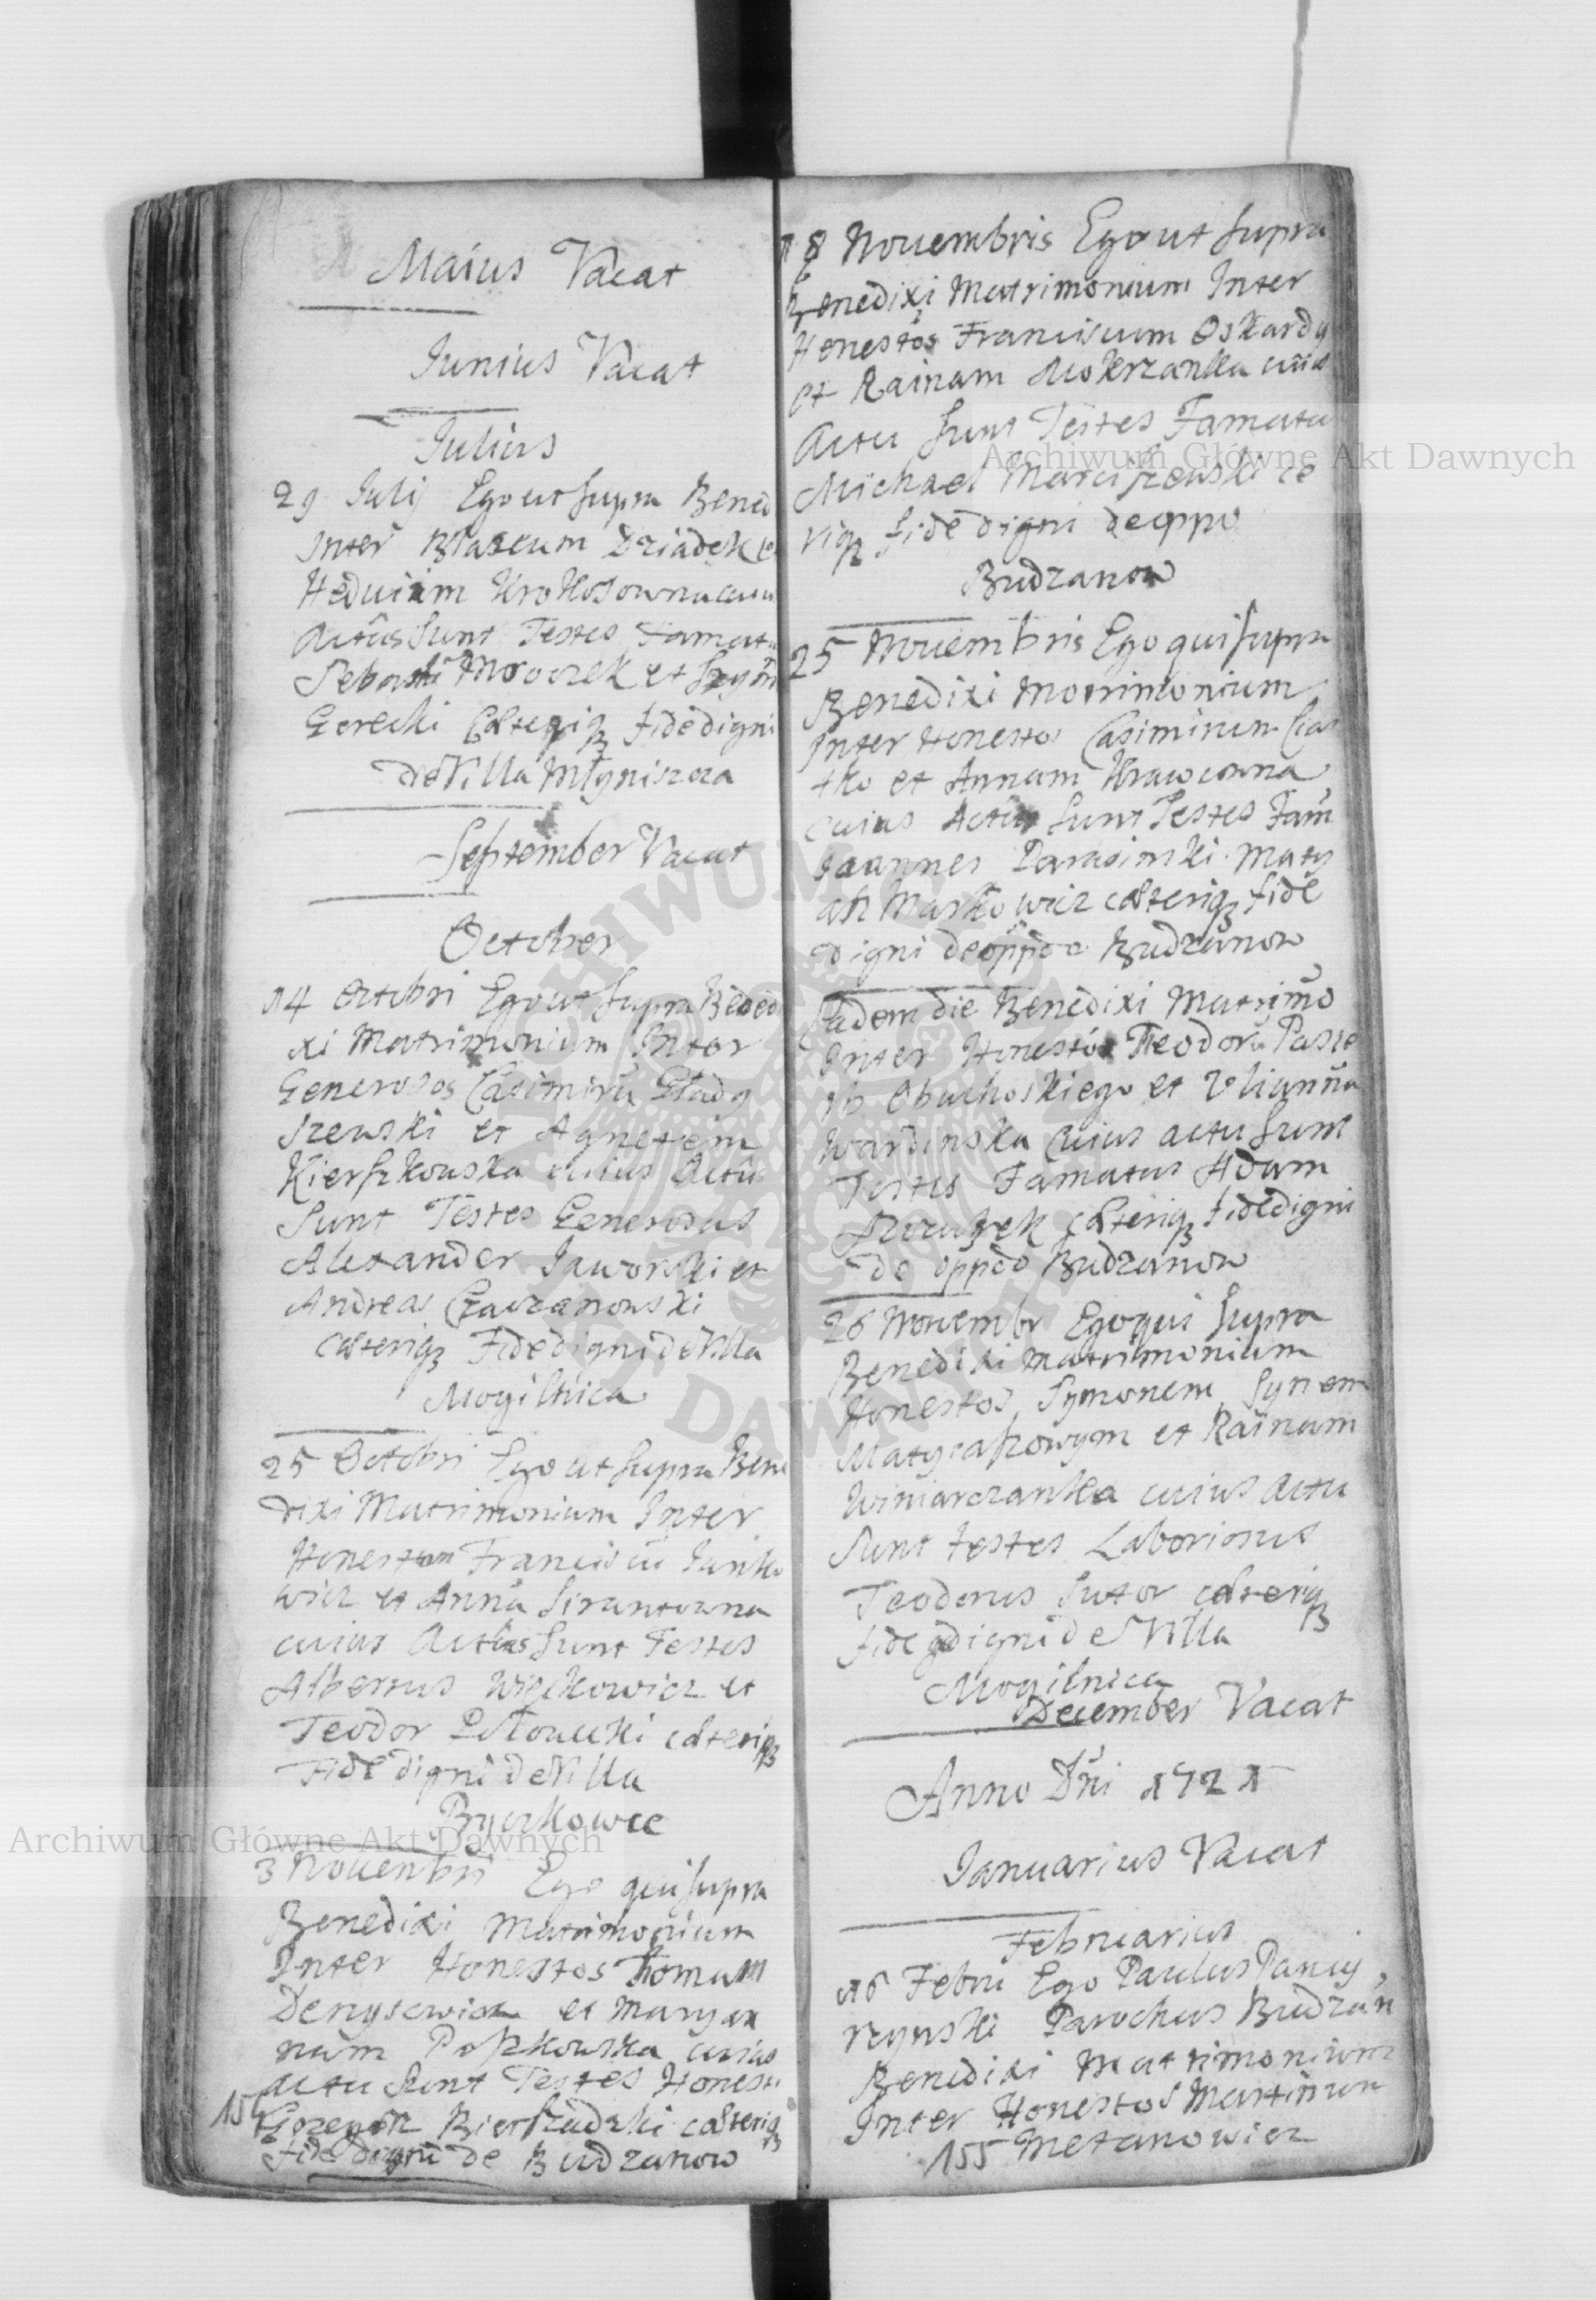 Maius Vacat
Iunius Vacat
Iulius
29 Iulij Ego ut supra Bened
Inter Blaseum Dziadek et
Heduiam Krokosowna cuiu
Actus sunt Testes Famat
Sebasti Mroczek et Szym
Gorecki Caeteriq3 fide digni
de Villa Młyniszcza
September Vacat
October
14 Octobri Ego ut supra Bened
xi Matrimonium Inter
Generosos Casimirū Gładÿ
szewski et Agnetem
Kierszkowska cuius Actu
Sunt Testes Generosus
Alexander Jaworski et
Andreas Czaczanowski
Caeteriq3 Fide digni de Villa
Mogilnica
25 Octobri Ego ut supra Bene
dixi Matrimonium Inter
Honestum Franciscū Janko
wicz et Annā Sirantowna
cuius Actus sunt Testes
Albertus Więckowicz et
Teodor caeteriq3
Fide digni de Villa
Byczkowce
3 Nouenbri Ego qui supra
Benedixi Matrimonium
Inter Honestos Thomam
Denysewicz et Maryan
nam Poszkowska cuius
actu sunt Testes Honesti
Grzegorz caeteriq3
fide digni de Budzanow
154
18 Nouembris Ego ut supra
Benedixi Matrimonium Inter
Honestos Franciscum Oskardy
et Rainam Mokrzanka cuius
Actu sunt Testes Famatu
Michael Marciszewski ce
riq3 fide digni de oppio
Budzanow
25 Nouembris Ego qui supra
Benedixi Motrimonium
Inter Honestos Casimirum Cias
tko et Annam Krawcowna
cuius Actus sunt Testes Fam
Ioannes Parasinski Maty
asz Markowicz caeteriq3 fide
digni de oppdo Budzanow
Eadem die Benedixi Matrimo
Inter Honestos Teodorū Pasie
Obuchoskiego et Vlianna
Wardinska cuius actu sunt
Testes Famatus Adam
caeteriq3 fide digni
de oppdo Budzanow
26 Nouembr Ego qui supra
Benedixi Matrimonium
Honestos Symonem Synem
Matyiaszowym et Rainam
Winiarczanka cuius actu
sunt testes Laboriosus
Teodorus Sutor caeteriq3
fide digni de Villa
Mogilnica
December Vacat
Anno Dni 1721
Ianuarius Vacat
Februarius
16 Febru Ego Paulus Panij
rzynski Parochus Budzan
Benedixi Matrimonium
Inter Honestos Martinum
Metanowicz
155
Archiwum Główne Akt Dawnych
Archiwum Główne Akt Dawnych
ARCHIWUM GŁÓWNE AKT DAWNYCH